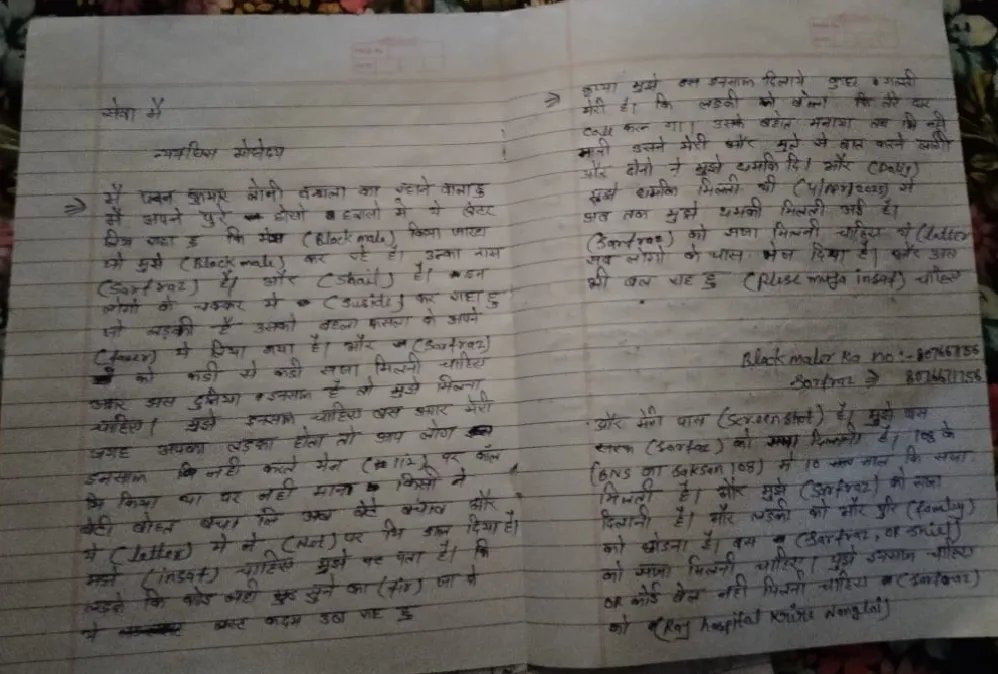 सेवा मे
न्यायधिस मोहोदय
⇒ मै पवन कुमार लोनी बन्थला का रहाने वाला हु
मैं अपने पुरे होसो हवासो मे ये लेटर
लिख रहा हु कि मेरा (Blackmale) किया जारहा
जो मुझे (Blackmale) कर रहे है। उनका नाम
(Sarfraz) है। और (Shail) है। इन
लोगो के चक्कर मे (Suside) कर रहा हु
जो लड़की है उसको बहला फुसला के अपने
(faver) मे लिया गया है। और (Sarfraz)
को कडी से कडी सजा मिलनी चाहिए
अगर इस दुनिया इनसाफ है तो मुझे मिलना
चाहिए। मुझे इनसाफ चाहिए बस अगर मेरी
जगह आपका लड़का होता तो आप लोग
इनसाफ कि नही करते मेने (112) पर कॉल
भि किया था पर नही माना किसी ने
बेटी बोहत बचा लि अब बेटे बचाव और
ये (letter) मे ने (Net) पर भि डाल दिया है।
मुझे (insaf) चाहिए मुझे पर पता है। कि
लडके कि कोई नही सुने का (fir) जा ने
ये कदम उठा रहा हु
⇒ कृप्या मुझे बस इनसाफ दिलाये कुछ गलती
मेरी है। कि लड़की को बोला कि तेरे घर
call कर गा। उसके बहोत मनाया तब भि नही
मानी उसने मेरी और मुझे से बात करने लागी
और दोनो ने मुझे धमकि दि। और (Daly)
मुझे धमकि मिलती थी (4/nov/2025) से
अब तक मुझे धमकी मिलती आई है।
(Sarfraz) को सजा मिलनी चाहिए ये (letter
सब लोगो के पास भेज दिया है। और अस
भी बता रहा हु (Plese muja insaf) चाहिए
Blackmaler ka no :- 80766756
Sarfraz 8076671756
और मेरी पास (Screenshot) है। मुझे बस
(Sarfaz) को सजा दिलानी है। 108 के
(BNS का Saksen 108) मे 10 साल कि सजा
मिलती है। और मुझे (Sarfraz) को सजा
दिलानी है। और लडकी को और पुरि (family)
को छोडना है। बस (Sarfraz, or Shail)
को सजा मिलनी चाहिए। मुझे इनसाफ चाहिए
or कोई बेल नही मिलनी चाहिए (Sarfraz)
को (Raj hospital Nangloi)